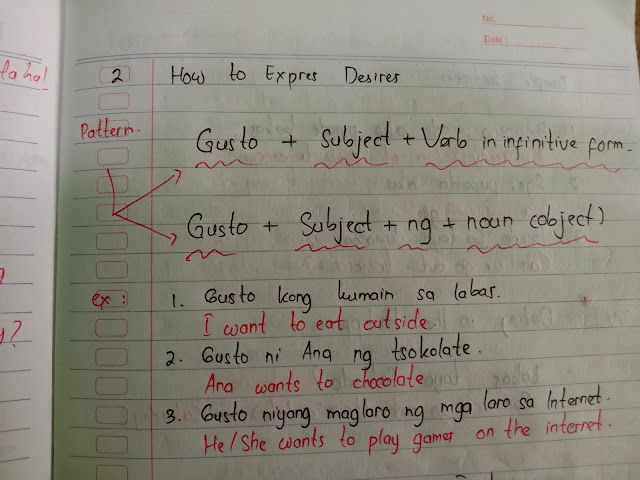 No.
Date:
laha!
2 How to Expres Desires
Pattern-
Gusto + Subject + Verb in infinitive form-
Gusto + Subject + ng + noun (object)
ex: 1. Gusto kong kumain sa labas.
I want to eat outside.
2. Gusto ni Ana ng tsokolate.
Ana wants to chocolate
?
3. Gusto niyang maglaro ng mga laro sa Internet.
He/She wants to play games on the internet.